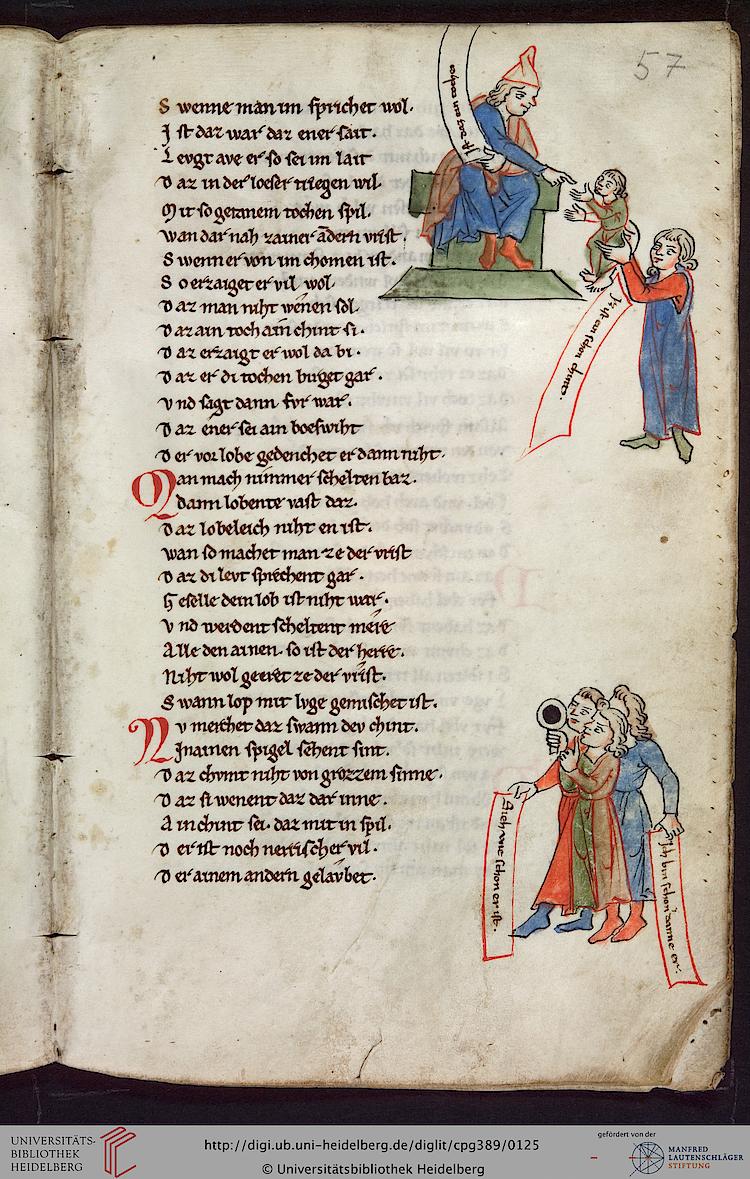 57
Ist daz ain toche
S wenne man im sprichet wol.
J st daz war daz ener sait.
L evgt ave er so sei im lait
D az in der loeser triegen wil
Mit so getanem tochen spil.
wan dar nah zainer andern vrist.
S wenn er von im chomen ist.
S o erzaiget er vil wol
D az man niht wenen sol
D az ain toch ain chint si.
D az erzaigt er wol da bi.
D az er di tochen burget gar.
v nd sagt dann fvr war.
D az ener sei ain boeswiht
D er vor lobe gedenchet er dann niht.
Man mach nimmer schelten baz.
dann lobente vast daz.
D az lobeleich niht en ist.
wan so machet man ze der vrist
D az di levt sprechent gar.
G eselle dein lob ist niht war.
v nd werdent scheltent mere
Alle den ainen. so ist der herre.
Niht wol geeret ze der vrist.
S wann lop mit lvge gemischet ist.
Nv merchet daz swann dev chint.
Jn ainen spigel sehent sint.
D az chvmt niht von grozzem sinne.
D az si wenent daz dar inne.
A in chint sei. daz mit in spil.
D er ist noch nerrischer vil.
D er ainem andern gelavbet.
Iz ist ein schon chint.
Sich wie schon er ist.
Ich bin schon danne er.
UNIVERSITÄTS-
BIBLIOTHEK
HEIDELBERG
http://digi.ub.uni-heidelberg.de/diglit/cpg389/0125
© Universitätsbibliothek Heidelberg
gefördert von der
MANFRED
LAUTENSCHLÄGER
STIFTUNG